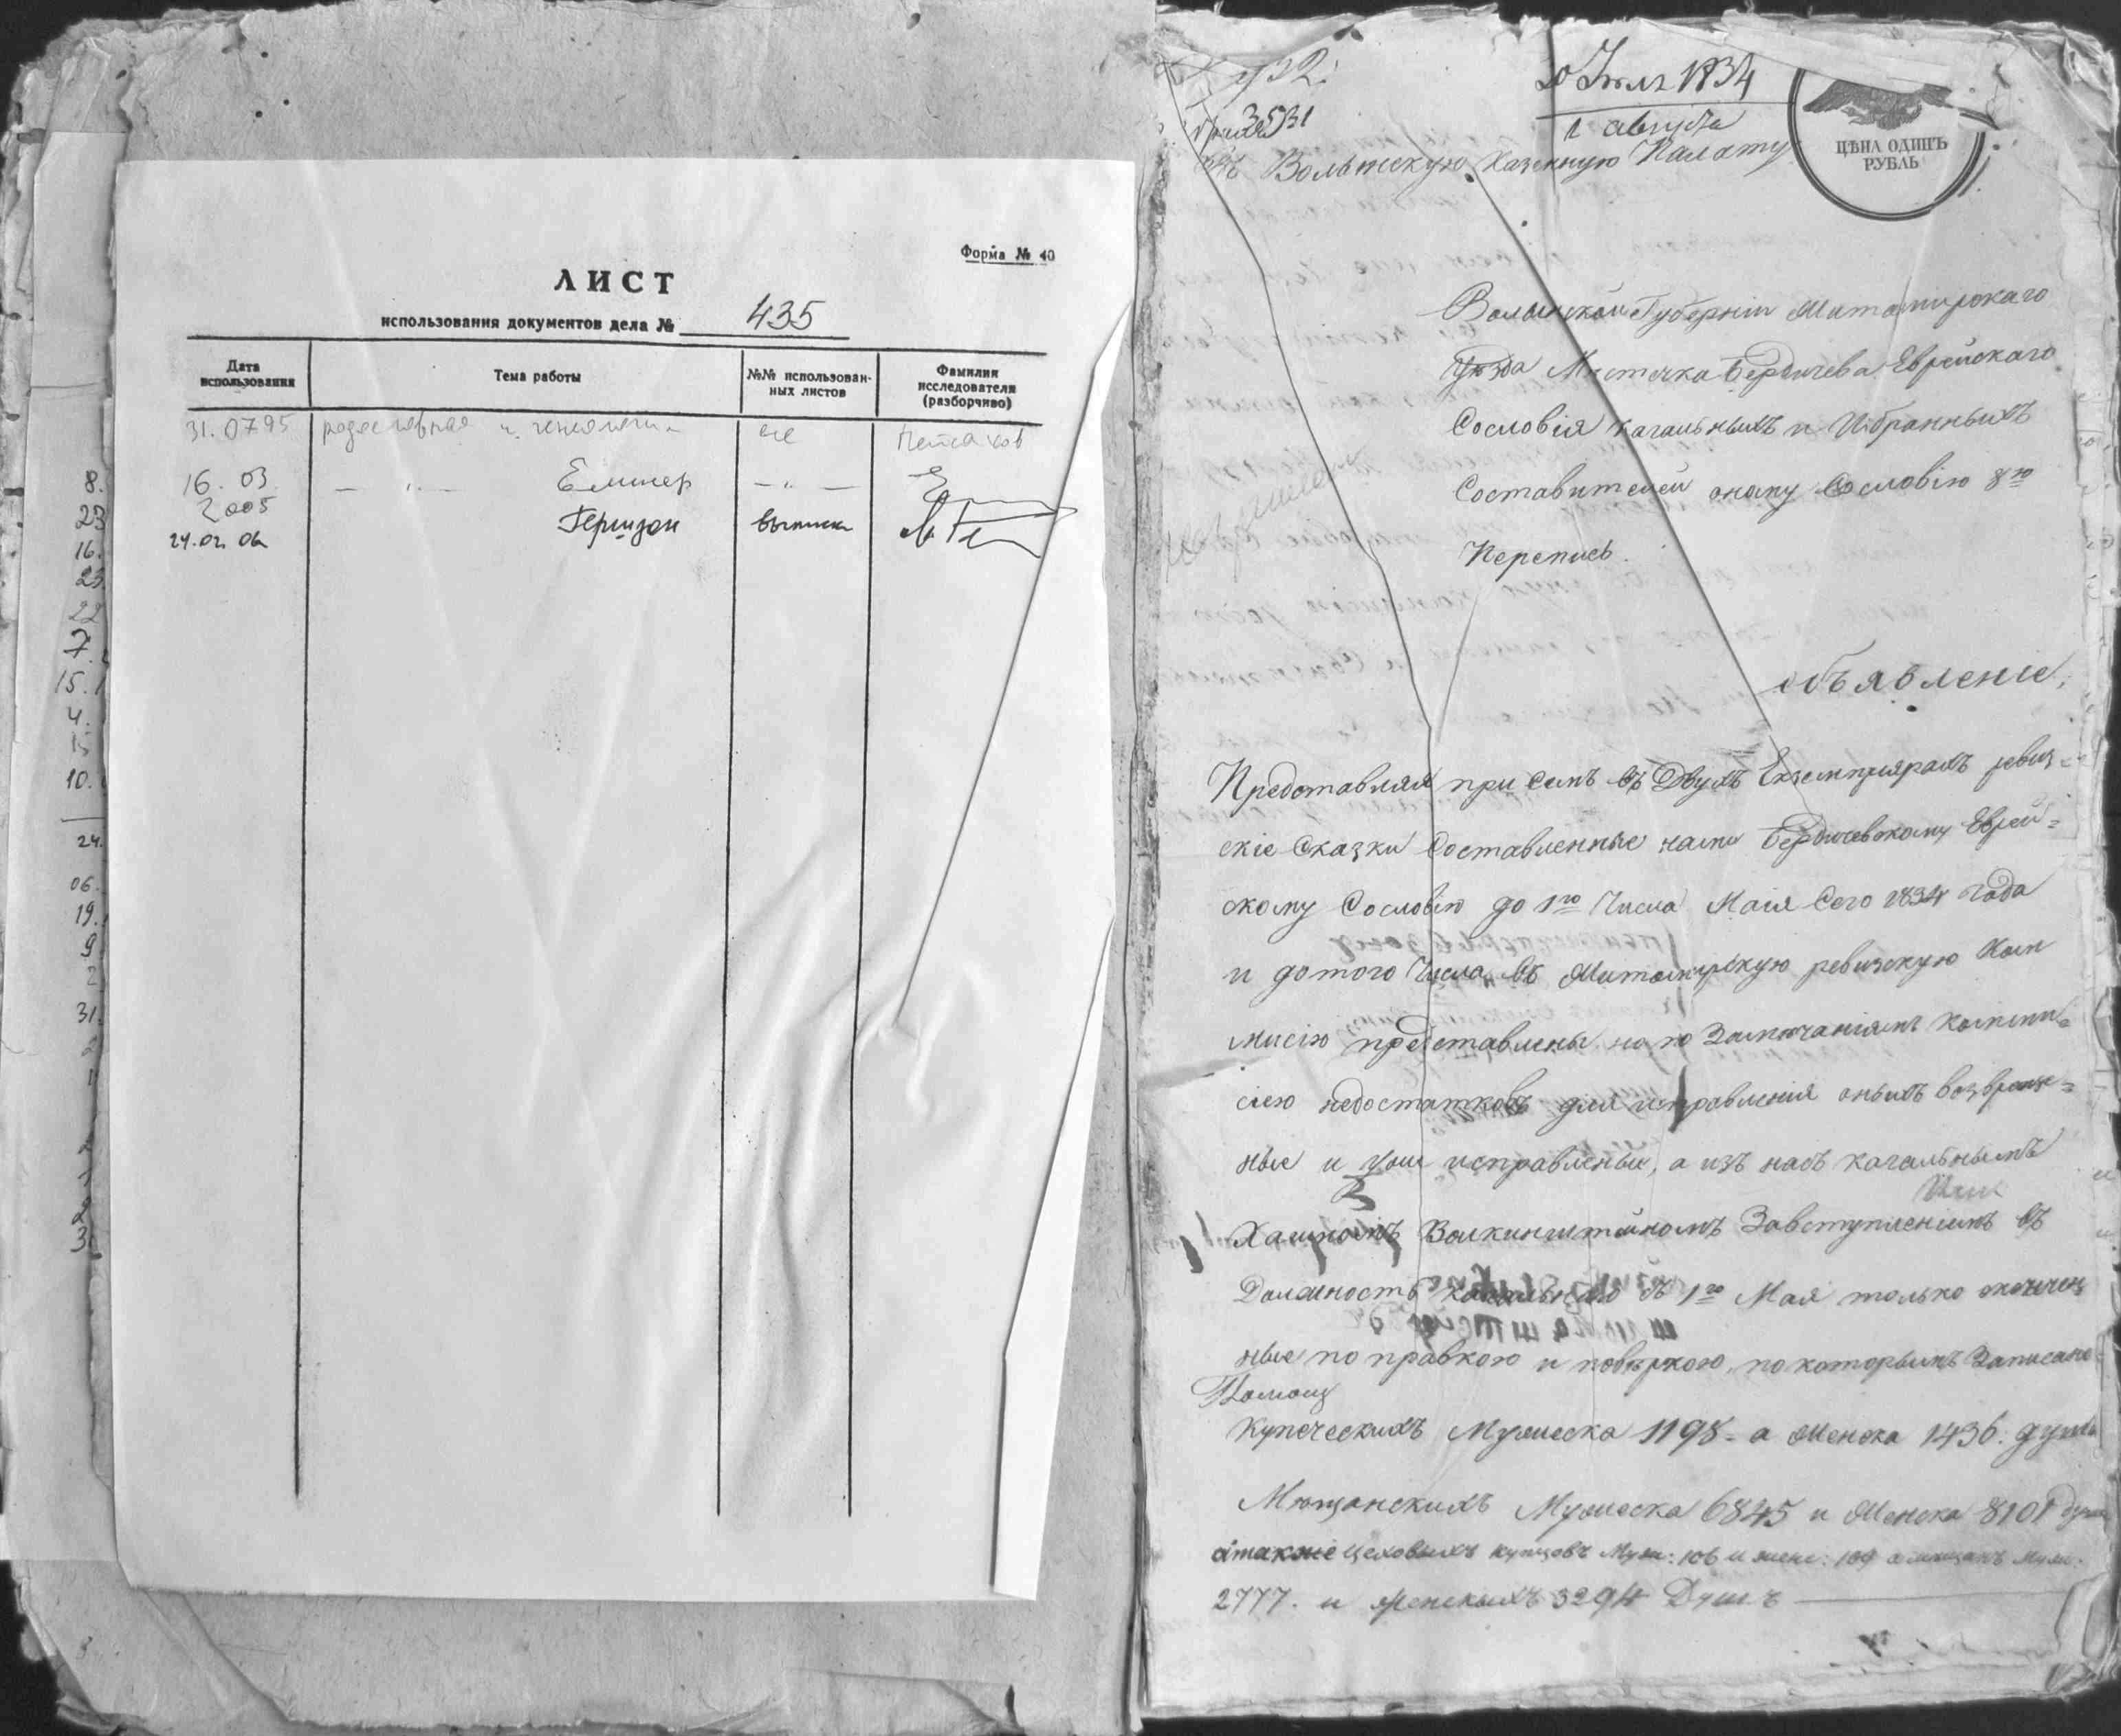 Форма № 40
ЛИСТ
использования документов дела № 435
Дата использования
Тема работы
№№ использован-
ных листов
Фамилия
исследователя
(разборчиво)
31.07.95 родословная
16. 03 2005 — " — — " —
Гершзон выписки
24.02.06
8.
23
16.
23.
22
7.
15.1
4.
10.
24.
06.
19.
9
31.
3531
20 Июля 1834
1 августа
ЦѢНА ОДИНЪ
РУБЛЬ
Въ Волынскую Казенную Палату
Волынской Губерніи Житомирскаго
уѣзда Мѣстечка Бердичева Еврейскаго
Сословія кагальныхъ и Избранныхъ
Составителей оному Сословію 8ю
Перепись.
Объявленіе,
Предоставляя при семъ въ Двухъ Екземплярахъ ревиз-
скіе Сказки Составленные нами Бердичевскому Еврей=
скому Сословію до 1го Числа Маія Сего 1834 года
и до того Числа въ Житомирскую ревизскую Ком
мисію представлены но по Замѣчаніямъ комми=
сіею недостатковъ для исправленія оныхъ возвращен=
ные и исправлены, а изъ насъ кагальнымъ
Хаимомъ Волкинштейномъ Завступленіемъ въ
Должность кагальнаго съ 1го Мая только окончен
ные поправкою и повѣркою, по которымъ Записано
купеческихъ Мужеска 1198 - а Женска 1436. душъ
Мѣщанскихъ Мужеска 6845 и Женска 8101 душъ
а также цеховыхъ купцовъ Муж: 106 и женс: 109 а мѣщанъ муж.
2777. и женскихъ 3294 Душъ